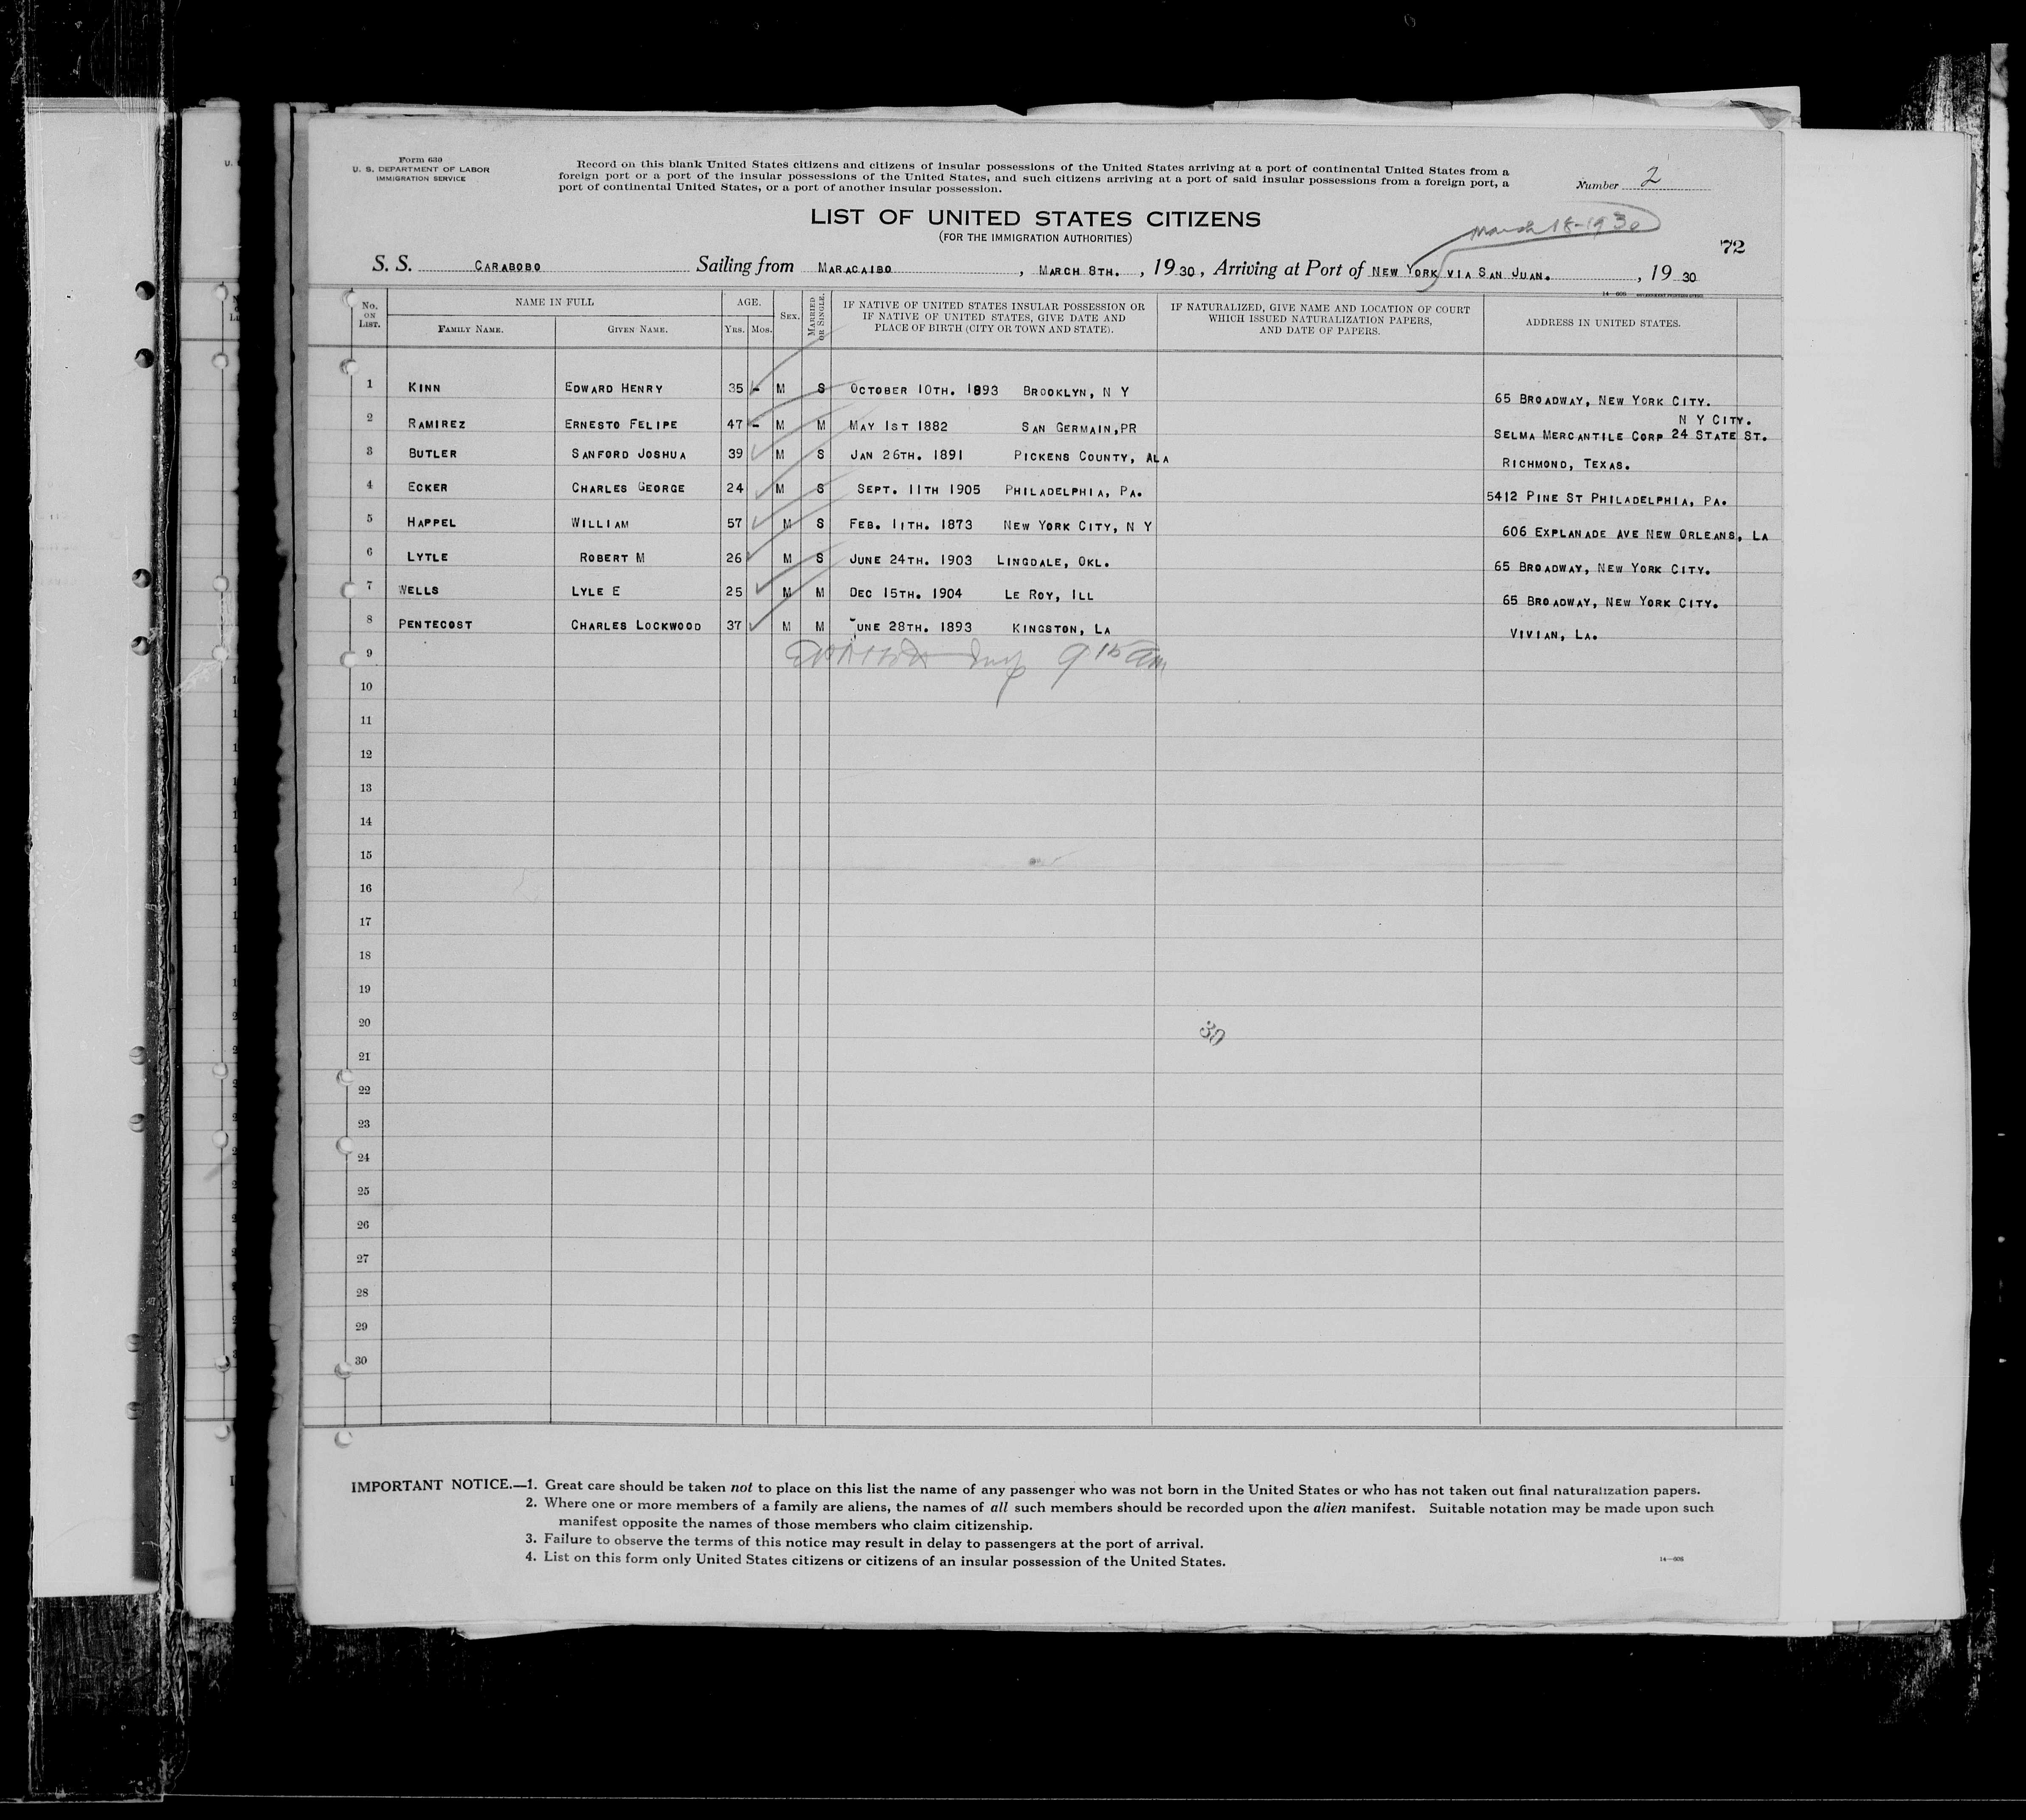 Form 630
U. S. DEPARTMENT OF LABOR
IMMIGRATION SERVICE
Record on this blank United States citizens and citizens of insular possessions of the United States arriving at a port of continental United States from a
foreign port or a port of the insular possessions of the United States, and such citizens arriving at a port of said insular possessions from a foreign port, a
port of continental United States, or a port of another insular possession.
Number 2
LIST OF UNITED STATES CITIZENS
(FOR THE IMMIGRATION AUTHORITIES)
March 18-1930
72
S. S. CARABOBO Sailing from MARACAIBO, MARCH 8TH., 1930, Arriving at Port of NEW YORK VIA SAN JUAN., 1930
No. ON LIST. NAME IN FULL AGE. SEX. MARRIED OR SINGLE. IF NATIVE OF UNITED STATES INSULAR POSSESSION OR IF NATIVE OF UNITED STATES, GIVE DATE AND PLACE OF BIRTH (CITY OR TOWN AND STATE). IF NATURALIZED, GIVE NAME AND LOCATION OF COURT WHICH ISSUED NATURALIZATION PAPERS, AND DATE OF PAPERS. ADDRESS IN UNITED STATES.
FAMILY NAME. GIVEN NAME. YRS. MOS.
1 KINN EDWARD HENRY 35 - M S OCTOBER 10TH. 1893 BROOKLYN, N Y 65 BROADWAY, NEW YORK CITY.
2 RAMIREZ ERNESTO FELIPE 47 - M M MAY 1ST 1882 SAN GERMAIN,PR N Y CITY. SELMA MERCANTILE CORP 24 STATE ST.
3 BUTLER SANFORD JOSHUA 39 M S JAN 26TH. 1891 PICKENS COUNTY, ALA RICHMOND, TEXAS.
4 ECKER CHARLES GEORGE 24 M S SEPT. 11TH 1905 PHILADELPHIA, PA. 5412 PINE ST PHILADELPHIA, PA.
5 HAPPEL WILLIAM 57 M S FEB. 11TH. 1873 NEW YORK CITY, N Y 606 EXPLANADE AVE NEW ORLEANS, LA
6 LYTLE ROBERT M 26 M S JUNE 24TH. 1903 LINGDALE, OKL. 65 BROADWAY, NEW YORK CITY.
7 WELLS LYLE E 25 M M DEC 15TH. 1904 LE ROY, ILL 65 BROADWAY, NEW YORK CITY.
8 PENTECOST CHARLES LOCKWOOD 37 M M JUNE 28TH. 1893 KINGSTON, LA VIVIAN, LA.
9 9 15 am
10
11
12
13
14
15
16
17
18
19
20
30
21
22
23
24
25
26
27
28
29
30
IMPORTANT NOTICE.—1. Great care should be taken not to place on this list the name of any passenger who was not born in the United States or who has not taken out final naturalization papers.
2. Where one or more members of a family are aliens, the names of all such members should be recorded upon the alien manifest. Suitable notation may be made upon such
manifest opposite the names of those members who claim citizenship.
3. Failure to observe the terms of this notice may result in delay to passengers at the port of arrival.
4. List on this form only United States citizens or citizens of an insular possession of the United States.
14—608